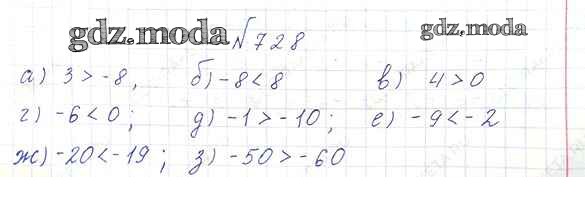 gdz.moda №728 gdz.moda
а) 3 > -8, б) -8 < 8 в) 4 > 0
г) -6 < 0; д) -1 > -10; е) -9 < -2
ж) -20 < -19; з) -50 > -60